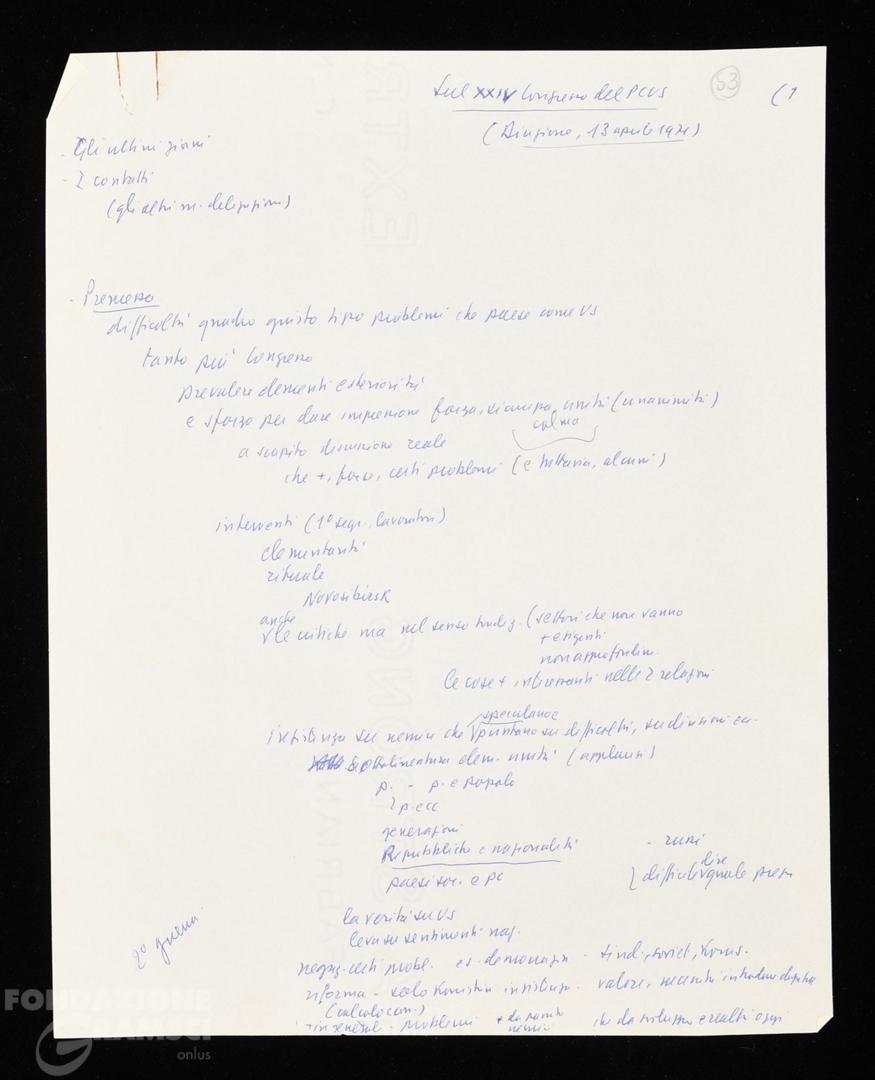 Sul XXIV Congresso del PCUS
53
(1
(Direzione, 13 aprile 1971)
- Gli ultimi giorni
- I contatti
(gli altri m. delegazioni)
- Premessa
difficoltà quadro giusto tipo problemi che paese come US
tanto più Congresso
prevalere elementi esteriorità
e sforzo per dare impressione forza, sicurezza, unità (unanimità)
calma
a scapito discussione reale
che +, forse, certi problemi (e tuttavia, alcuni)
interventi (1° segr., lavoratori)
elementarità
rituale
Novosibirsk
anche
le critiche ma nel senso tradiz. (settori che non vanno
+ esigenti
non approfondim.
le cose + interessanti nelle 2 relazioni
speculano e
insistenza sul nemico che puntano su difficoltà, su divisioni ecc.
sottolineatura elem. unità (applausi)
p. - p. e popolo
p. ecc
generazioni
Repubbliche e nazionalità
- russi
dire
difficile quale presa
paesi soc. e PC
la verità su US
leva su sentimenti naz.
2° guerra
negaz. certi probl. es. democrazia - sind., soviet, Koms.
riforma - solo Kossighin insistenza - valore, necessità
(calcolo econ.)
in generale - problemi
nemico
che da sviluppo e realtà oggi
FONDAZIONE
GRAMSCI
onlus